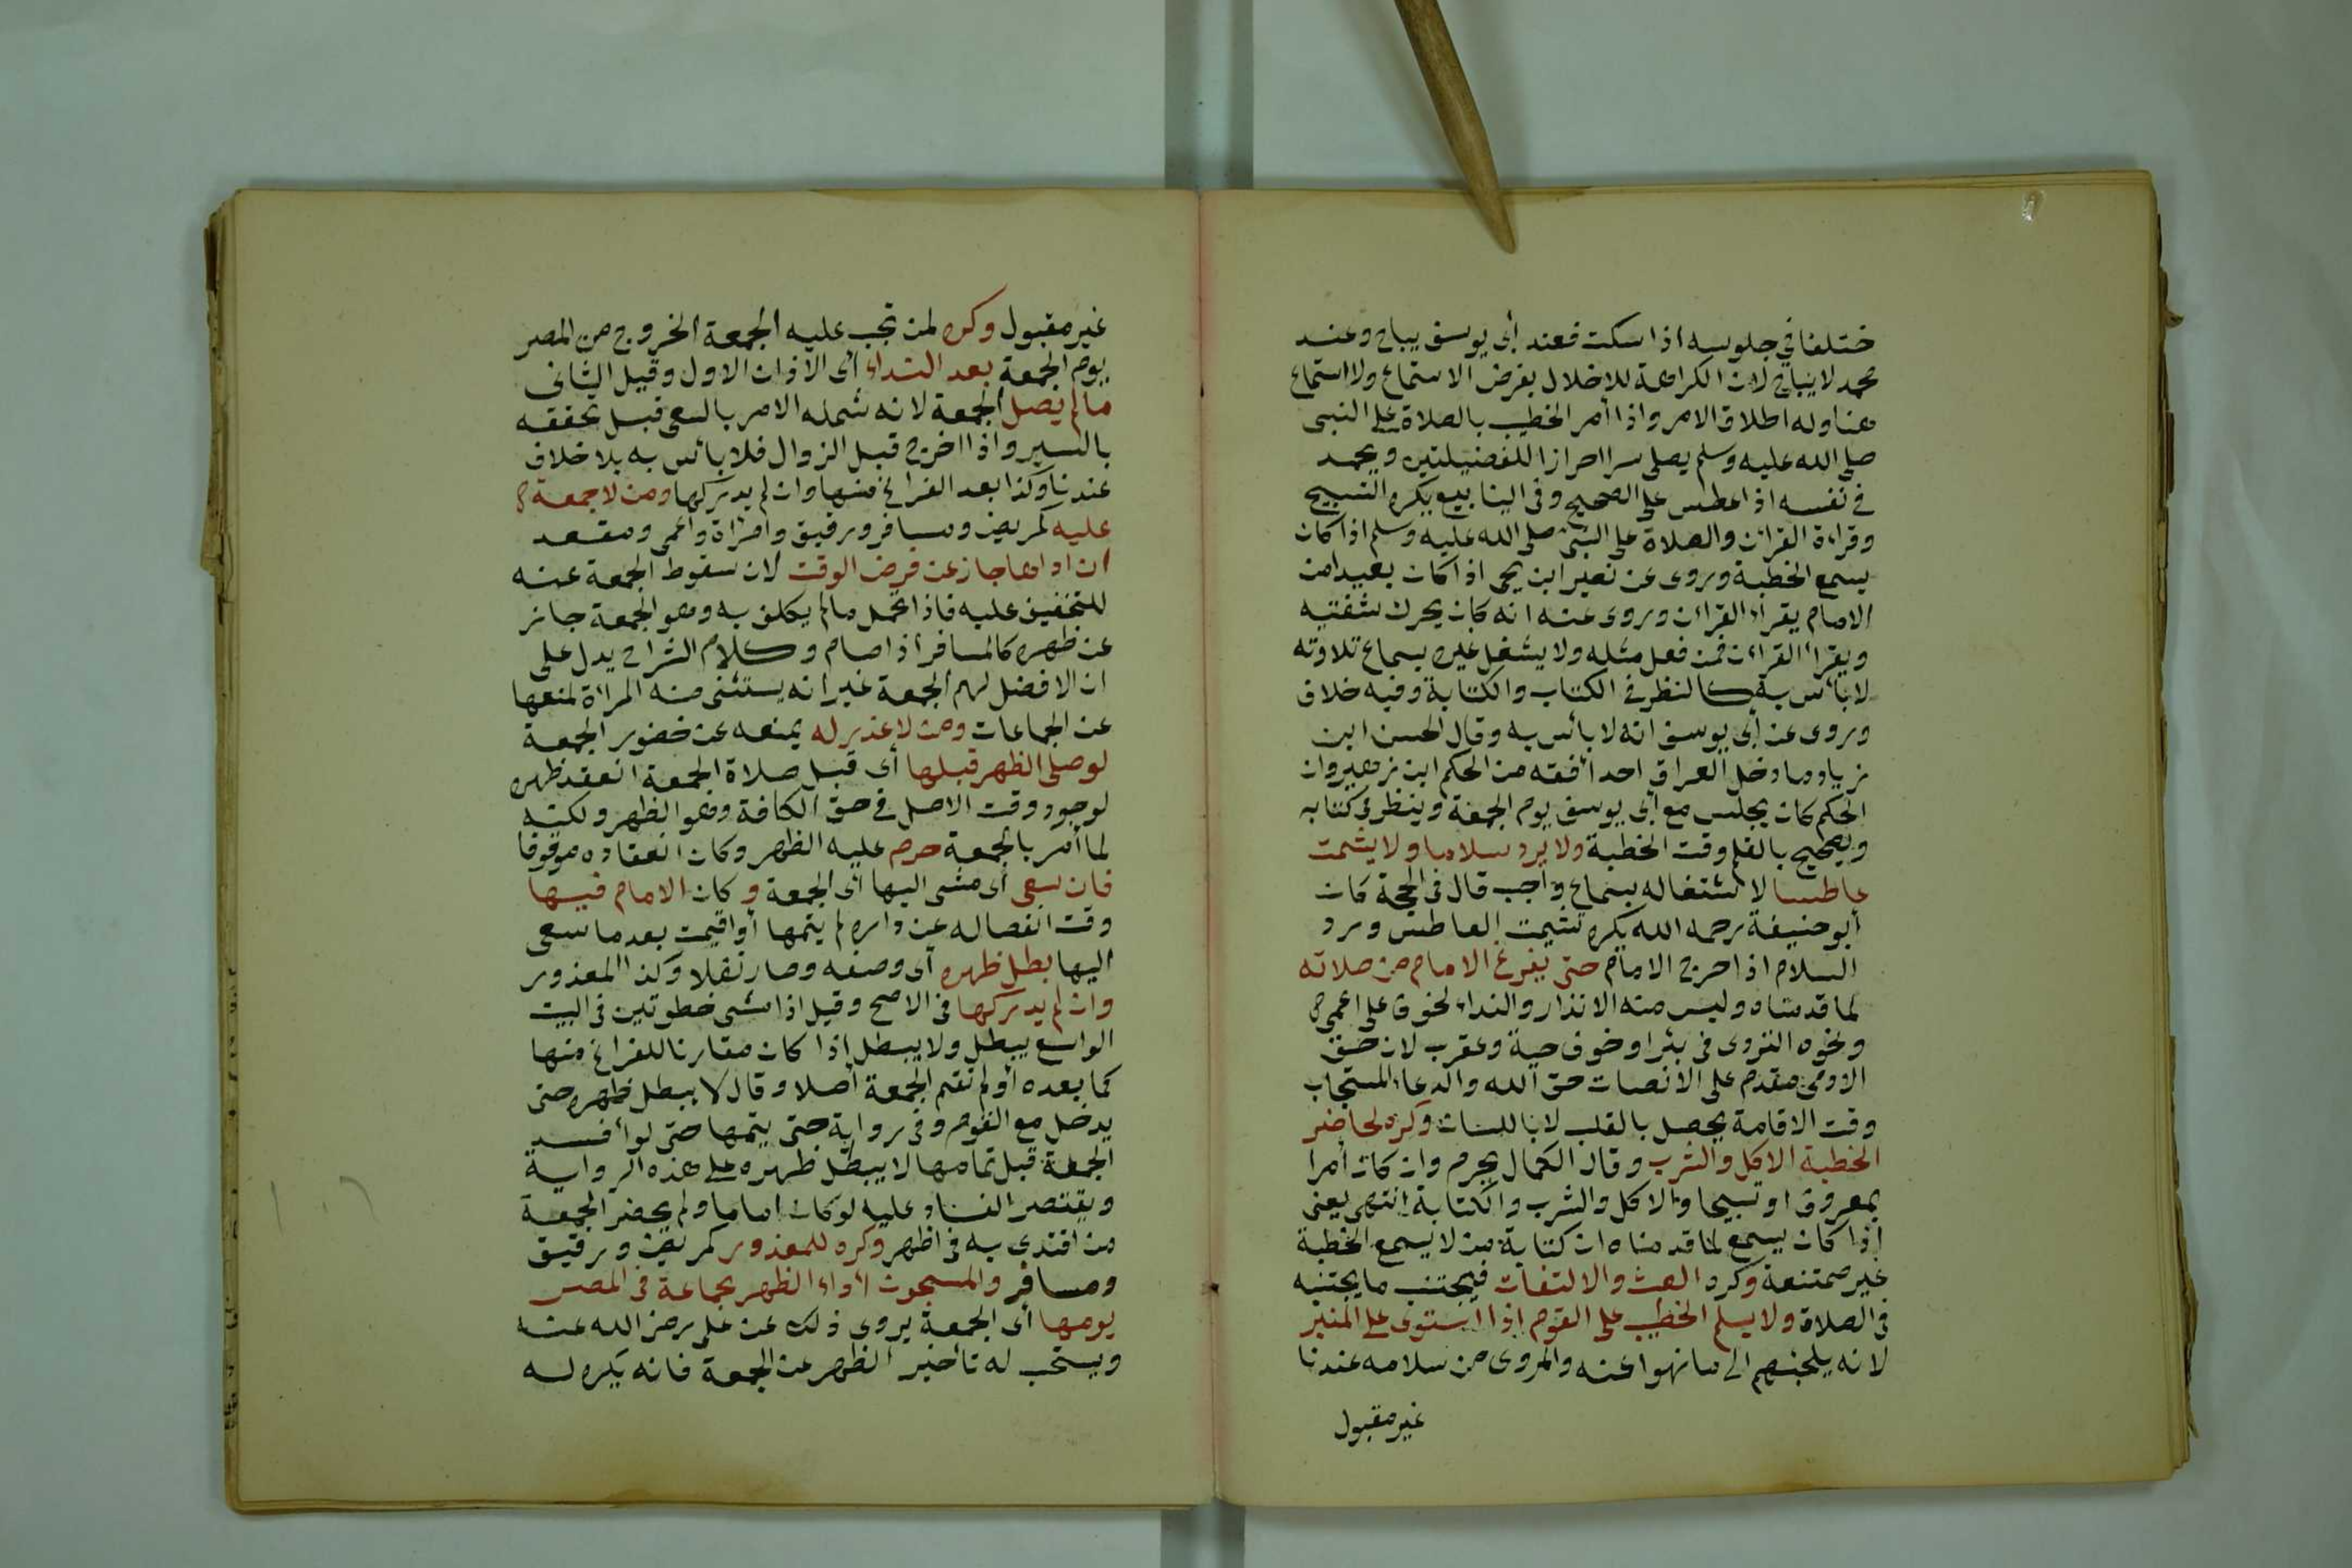 ختلفا في جلوسه اذا سكت فعند أبى يوسف يباح وعند
محمد لا يباح لان الكراهة للاخلال بفرض الاستماع ولا استماع
هنا وله اطلاق الامر واذا أمر الخطيب بالصلاة على النبى
صلى الله عليه وسلم يصلى سرا احرازا للفضيلتين ويحمد
في نفسه اذا عطس على الصحيح وفى الينابيع يكره التسبيح
وقراءة القرآن والصلاة على النبى صلى الله عليه وسلم اذا كان
يسمع الخطبة وروى عن نصير ابن يحى اذا كان بعيدا من
الامام يقراء القرآن وروى عنه انه كان يحرك شفتيه
ويقرأ القرآن فمن فعل مثله ولا يشغل غيره بسماع تلاوته
لا بأس به كالنظر في الكتاب والكتابة وفيه خلاف
وروى عن أبى يوسف انه لا بأس به وقال الحسن ابن
زياد ما دخل العراق احد أفقه من الحكم ابن زهير وان
الحكم كان يجلس مع أبى يوسف يوم الجمعة وينظر في كتابه
ويصحح بالقلم وقت الخطبة ولا يرد سلاما ولا يشمت
عاطسا لاشتغاله بسماع واجب قال فى الحجة كان
أبو حنيفة رحمه الله يكره تشميت العاطس ورد
السلام اذا خرج الامام حتى يفرغ الامام من صلاته
لما قدمناه وليس منه الانذار والنداء لخوف على اعمى
ونحوه التردى فى بئر او خوف حية وعقرب لان حق
الادمى مقدم على الانصات حق الله والدعاء المستجاب
وقت الاقامة يحصل بالقلب لا باللسان وكره لحاضر
الخطبة الاكل والشرب وقال الكمال يحرم وان كان أمرا
بمعروف او تسبيحا والاكل والشرب والكتابة انتهى يعنى
اذا كان يسمع لما قدمناه ان كتابة من لا يسمع الخطبة
غير ممتنعة وكره العبث والالتفات فيجتنب ما يجتنبه
فى الصلاة ولا يسلم الخطيب على القوم اذا استوى على المنبر
لانه يلجئهم الى ما نهوا عنه والمروى من سلامه عندنا
غير مقبول
غير مقبول وكره لمن تجب عليه الجمعة الخروج من المصر
يوم الجمعة بعد النداء أى الاذان الاول وقيل الثانى
ما لم يصل الجمعة لانه شمله الامر بالسعى قبل تحققه
بالسير واذا اخرج قبل الزوال فلا بأس به بلا خلاف
عندنا وكذا بعد الفراغ منها وان لم يدركها ومن لا جمعة
عليه كمريض ومسافر ورقيق وامرأة وأعمى ومقعد
ان اداها جاز عن فرض الوقت لان سقوط الجمعة عنه
للتخفيف عليه فاذا تحمل ما لم يكلف به وهو الجمعة جاز
عن ظهره كالمسافر أذا صام وكلام الشراح يدل على
ان الافضل لهم الجمعة غير انه يستثنى منه المرأة لمنعها
عن الجماعات ومن لا عذر له يمنعه عن حضور الجمعة
لو صلى الظهر قبلها أى قبل صلاة الجمعة انعقد ظهره
لوجود وقت الاصل في حق الكافة وهو الظهر ولكنه
لما أمر بالجمعة حرم عليه الظهر وكان انعقاده موقوفا
فان سعى أى مشى اليها أى الجمعة وكان الامام فيها
وقت انفصاله عن داره لم يتمها أو اقيمت بعد ما سعى
اليها بطل ظهره أى وصفه وصار نفلا وكذا المعذور
وان لم يدركها فى الاصح وقيل اذا مشى خطوتين فى البيت
الواسع يبطل ولا يبطل إذا كان مقارنا للفراغ منها
كما بعده أو لم تقم الجمعة أصلا وقال لا يبطل ظهره حتى
يدخل مع القوم وفى رواية حتى يتمها حتى لو أفسد
الجمعة قبل تمامها لا يبطل ظهره على هذه الرواية
ويقتصر الفساد عليه لو كان اماما ولم يحضر الجمعة
من اقتدى به فى اظهر وكره للمعذور كمريض ورقيق
ومسافر والمسجون أداء الظهر بجماعة فى المصر
يومها أى الجمعة يروى ذلك عن على رضى الله عنه
ويستحب له تأخير الظهر عن الجمعة فانه يكره له